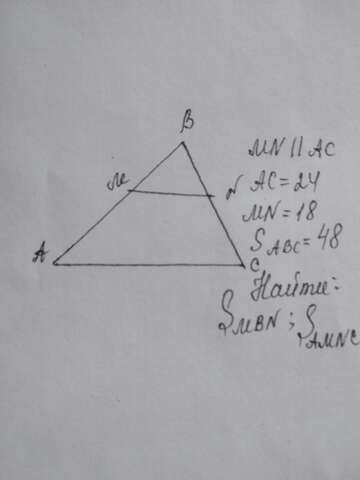 B
MN || AC
M
N AC = 24
MN = 18
S ABC = 48
A
C
Найти:
S MBN ; S AMNC